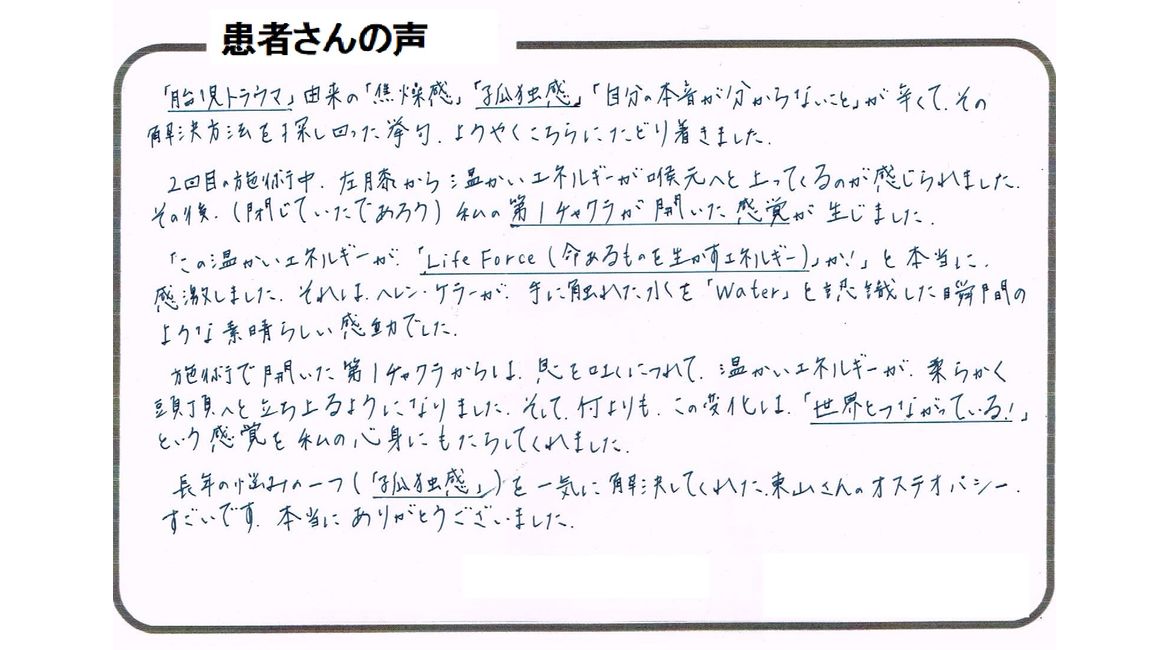 患者さんの声
「胎児トラウマ」由来の「焦燥感」「孤独感」「自分の本音が分からないこと」が辛くて、その
解決方法を探し回った挙句、ようやくこちらにたどり着きました。
2回目の施術中、左膝から温かいエネルギーが喉元へと上ってくるのが感じられました。
その後、(閉じていたであろう)私の第1チャクラが開いた感覚が生じました。
「この温かいエネルギーが、「Life Force(命あるものを生かすエネルギー)」か!」と本当に、
感激しました。それは、ヘレン・ケラーが、手に触れた水を「Water」と認識した瞬間の
ような素晴らしい感動でした。
施術で開いた第1チャクラからは、息を吐くにつれて、温かいエネルギーが、柔らかく
頭頂へと立ち上るようになりました。そして、何よりも、この変化は、「世界とつながっている!」
という感覚を私の心身にもたらしてくれました。
長年の悩みの一つ(「孤独感」)を一気に解決してくれた、東山さんのオステオパシー、
すごいです。本当にありがとうございました。